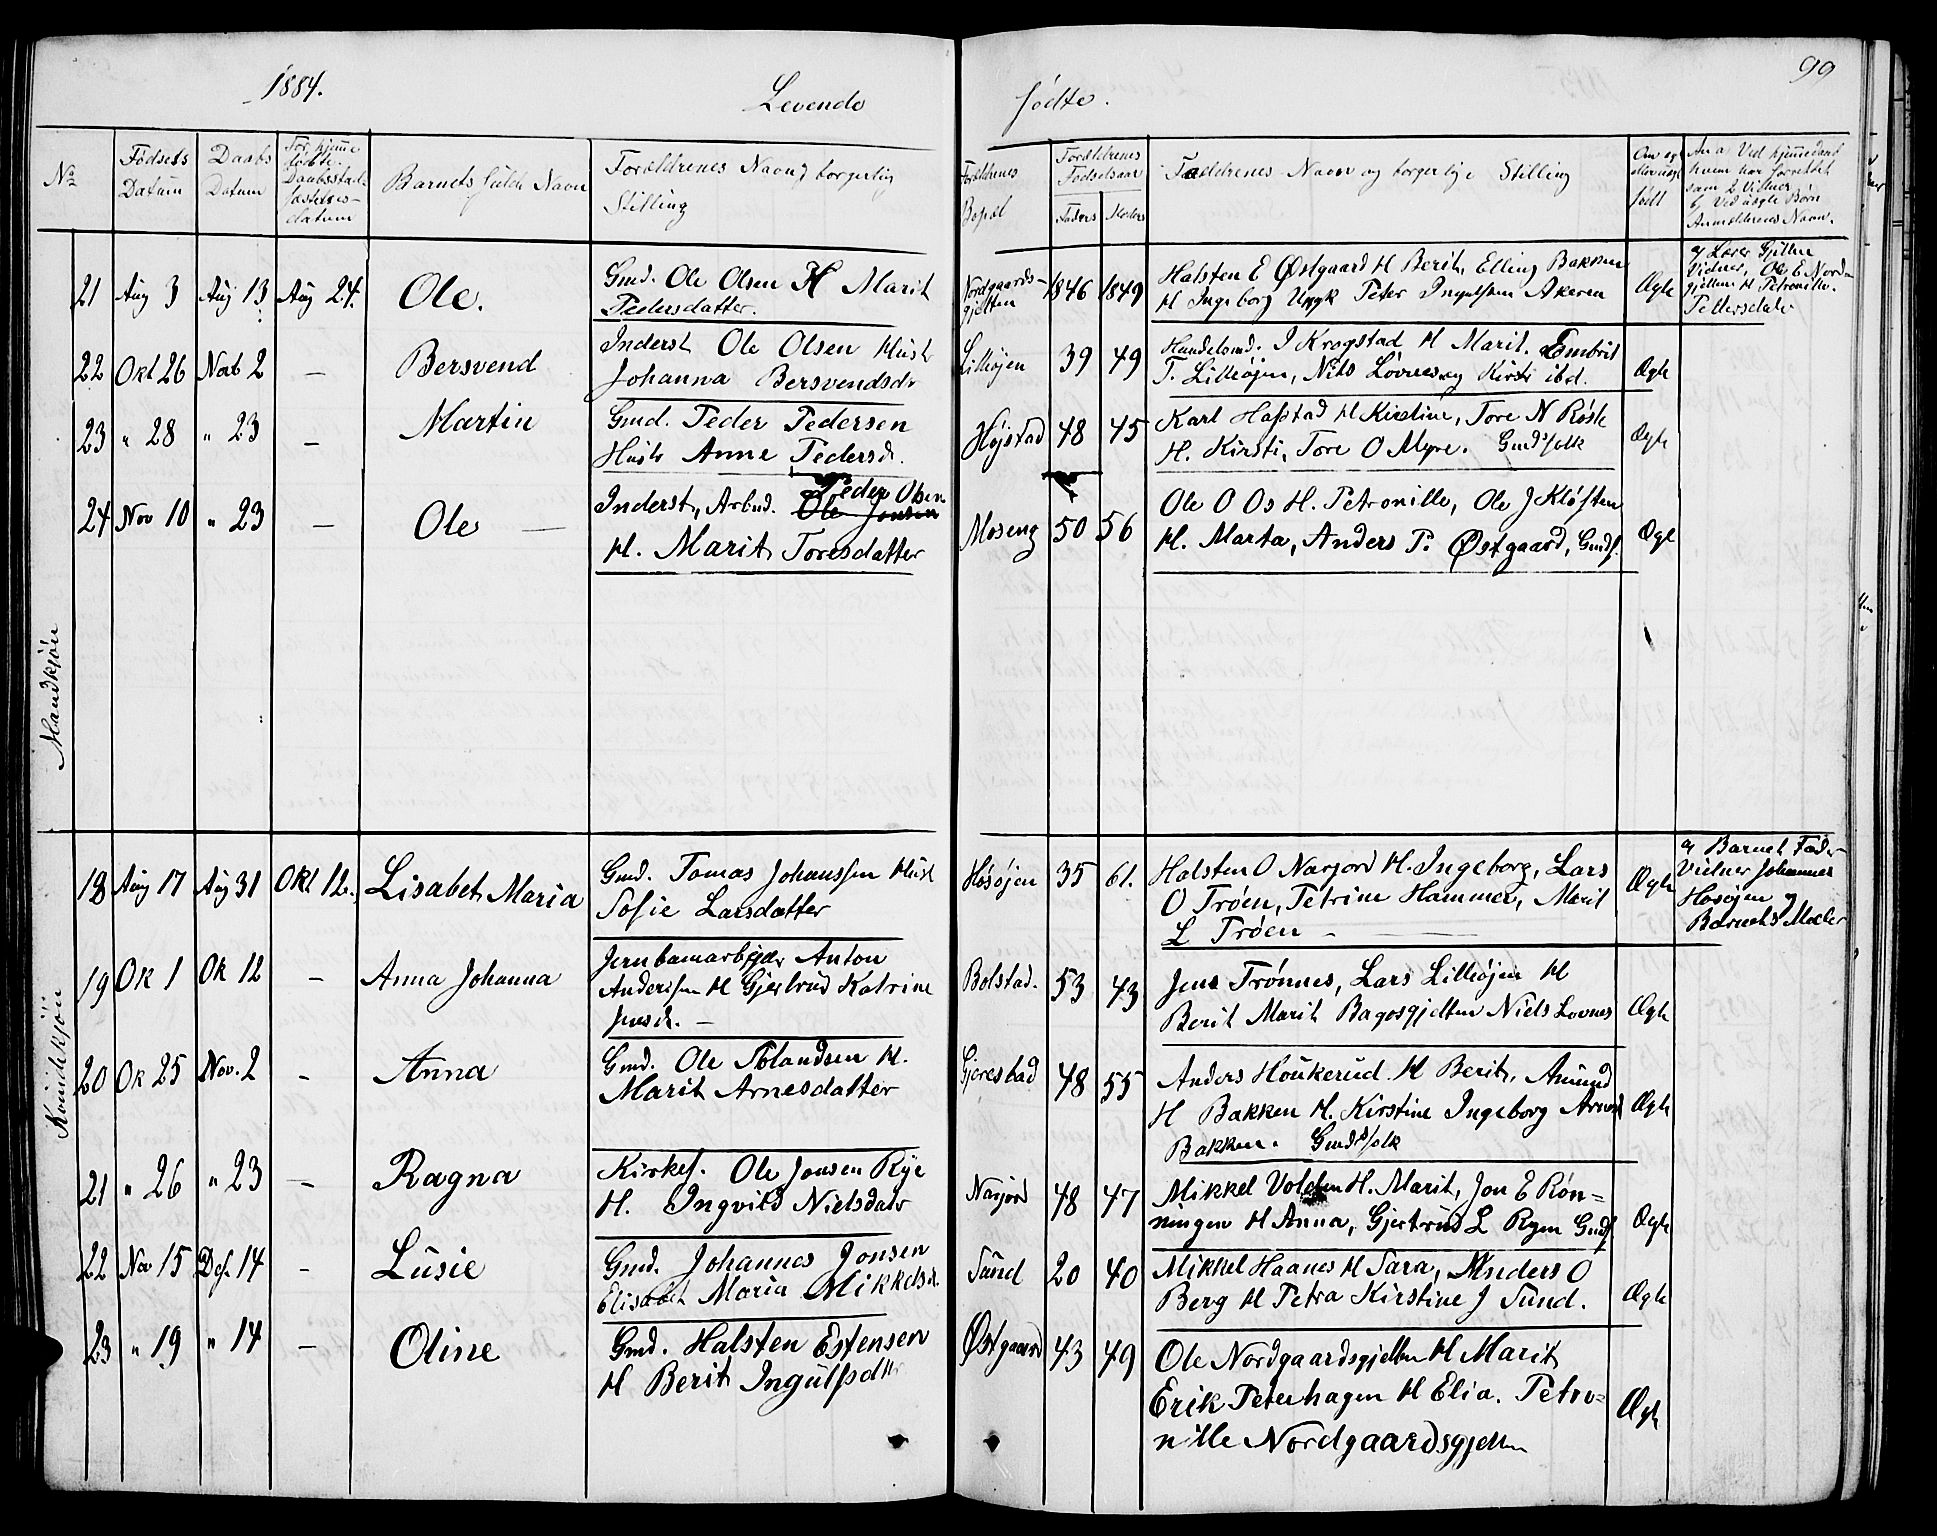 1884.
Levende
fødte.
99
No
Fødsels
Datum
Daabs
Datum
For hjemme
døbte
Daabsstad-
fæstelses-
datum
Barnets fulde Navn
Forældrenes Navn og borgerlig
Stilling
Forældrenes
Bopæl
Forældrenes
Fødselsaar
Faders
Moders
Faddrenes Navn og borgerlige Stilling
Om ægte
eller uægte
født
Anm a Ved hjemmedaab
hvem har forrettet
samt 2 Vitner
b Ved uægte Børn
Anmelderens Navn.
Mandkjön
21
Aug 3
Aug 13
Aug 24.
Ole.
Gmd. Ole Olsen H Marit
Pedersdatter.
Nordgaards-
gjelten
1846
1849
Halsten E Østgaard H Berit, Elling Bakken
H Ingeborg Peter Ingulfsen Akeren
Ægte
a Lærer Gjelten
Vidner, Ole E Nord-
gjelten H Petronille.
Pettersdatr
22
Okt 26
Nov 2
–
Bersvend
Inderst Ole Olsen Hust
Johanna Bersvendsdr
Lilleøjen
39
49
Handelsmd. J Krogstad H Marit. Embrit
T. Lilleøjen, Nils Lovnes og Kirsti ibd.
Ægte
23
" 28
" 23
–
Martin
Gmd. Peder Pedersen
Hust Anne Pedersd.
Højstad
48
45
Karl Hafstad H Kirstine, Tore N Røste
H. Kirsti, Tore O Myre. Gmdsfolk
Ægte
24
Nov 10
" 23
–
Ole –
Peder Olsen
Inderst, Arbmd. Ole Jonsen
H. Marit Toresdatter
Moseng
50
56
Ole O Os H. Petronille, Ole J Kløften
H. Marta, Anders P. Østgaard, Gmdf.
Ægte
Kvindekjön
18
Aug 17
Aug 31
Okt 12.
Lisabet Maria
Gmd. Tomas Johanssen Hust
Sofie Larsdatter
Høsøjen
35
61.
Halsten O Narjord H. Ingeborg, Lars
O Trøen, Petrine Hammer, Marit
L Trøen –
Ægte
a Barnets Fader
Vidner Johannes
Høsøjen og
Barnets Moder
19
Ok 1
Ok 12
–
Anna Johanna
Jernbanearbejder Anton
Anderssen H Gjertrud Katrine
Jensd. –
Bolstad.
53
43
Jens Trønnes, Lars Lilleøjen H
Berit Marit Bagosgjelten Niels Lovnes
Ægte
20
Ok 25
Nov. 2
–
Anna
Gmd. Ole Tolandsen H.
Marit Arnesdatter
Gjorestad
48
55
Anders Houkerud. H Berit, Amund
H Bakken H. Kirstine Ingeborg Arnesd
Bakken. Gmdsfolk
Ægte
21
" 26
" 23
–
Ragna
Kirkes. Ole Jonsen Rye
H. Ingvild Nielsdatr
Narjord
48
47
Mikkel Volden H. Marit, Jon E Røn-
ningen H Anna, Gjertrud L Ryen Gmdf
Ægte
22
Nov 15
Des. 14
–
Lusie
Gmd. Johannes Jonsen
Elisabet Maria Mikkelsd.
Sund
20
40
Mikkel Haanes H Sara, Anders O
Berg H Petra Kirstine J Sund.
Ægte
23
" 19
" 14
–
Oline
Gmd. Halsten Estensen
H Berit Ingulfsdtr
Østgaard
43
49
Ole Nordgaardsgjelten H Marit
Erik Peterhagen H Elia. Petro-
nille Nordgaardsgjelten
Ægte